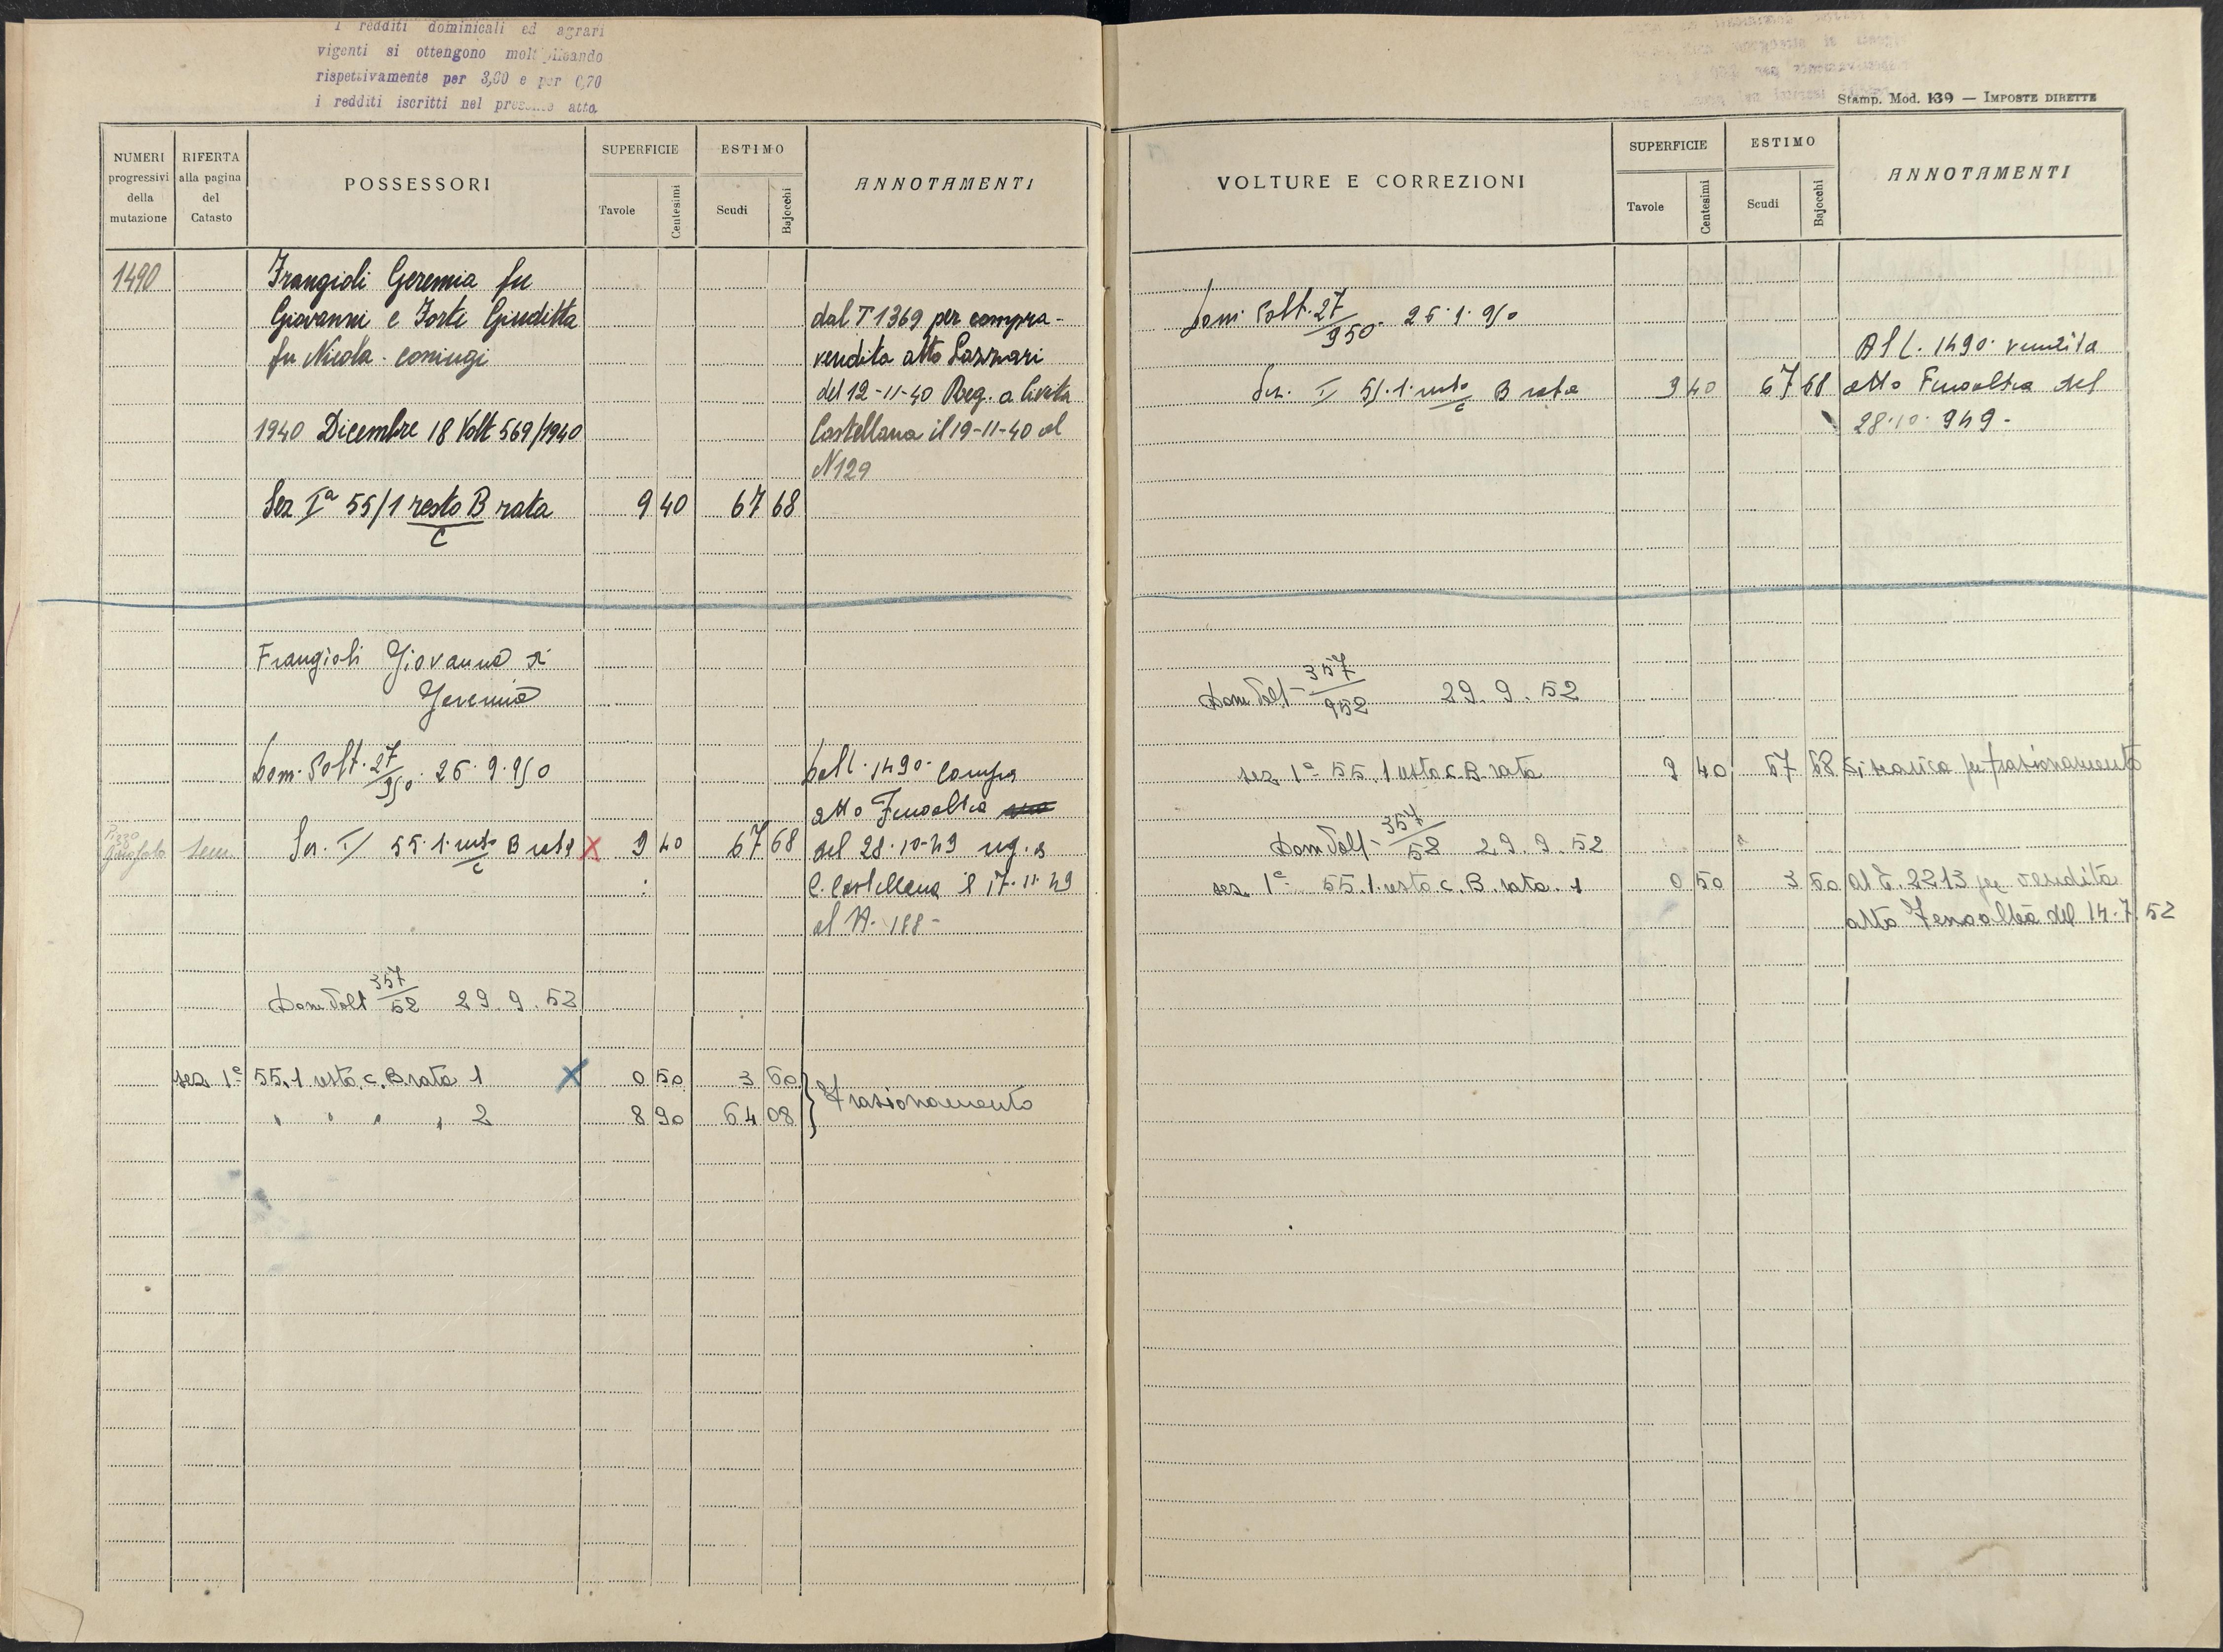 I redditi dominicali ed agrari
vigenti si ottengono moltiplicando
rispettivamente per 3,60 e per 0,70
i redditi iscritti nel presente atto.
NUMERI progressivi della mutazione
RIFERTA alla pagina del Catasto
POSSESSORI
SUPERFICIE
Tavole
Centesimi
ESTIMO
Scudi
Bajocchi
ANNOTAMENTI
1490
Frangioli Geremia fu
Giovanni e Forti Giuditta
fu Nicola - coniugi
1940 Dicembre 18 Volt 569/1940
Sez Iª 55/1 resto B rata 9 40 67 68
c
dal T 1369 per compra-
vendita atto Lazzari
del 12-11-40 Reg. a Civita
Castellana il 19-11-40 al
N 129
Frangioli Giovanni di
Geremia
Dom. Volt. 27/950. 26.9.950
Pizzo
Garofalo
Sem.
Sez. I 55.1. resto B rata X 9 40 67 68
c
Dal C. 1490. Compra
atto Fenoaltea
del 28.10.49 reg. a
C. Castellana il 17.11.49
al N. 188-
Dom Volt 357/52 29.9.52
sez 1ª 55.1 resto c. B rata 1 X 0 50 3 60
" " " " 2 8 90 64 08
} Frazionamento
Stamp. Mod. 139 — IMPOSTE DIRETTE
VOLTURE E CORREZIONI
SUPERFICIE
Tavole
Centesimi
ESTIMO
Scudi
Bajocchi
ANNOTAMENTI
Dom. Volt. 27/950. 26.1.950
Sez. I 55.1. resto B rata 9 40 67 68
c
Al C. 1490. vendita
atto Fenoaltea del
28.10.949-
Dom Volt - 357/952 29.9.52
sez 1ª 55.1 resto c. B rata 9 40 67 68 Si scarica per frazionamento
Dom Volt - 357/52 29.9.52
sez. 1ª 55.1 resto c. B. rata. 1 0 50 3 60 Al C. 2213 per vendita
atto Fenoaltea del 14.7.52